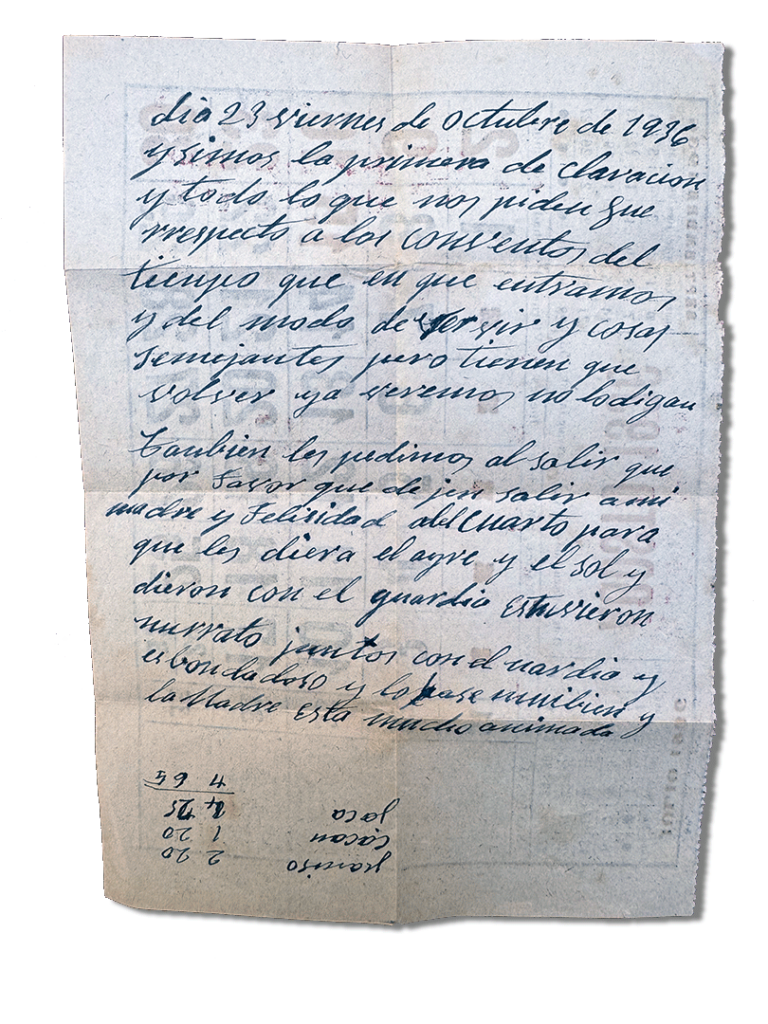 dia 23 viernes de octubre de 1936
ysimos la primera de claracion
y todo lo que nos piden que
rrespecto a los conventos del
tienpo que en que entramos
y del modo de y cosas
semejantes pero tienen que
volver ya veremos no lo digan
Tanbien les pedimos al salir que
por Favor que de jen salir a mi
madre y Felisidad del cuarto para
que les diera el ayre y el sol y
dieron con el guardia Estuvieron
un rrato juntos con el uardia y
es bondadoso y lo pase muibien y
la Madre Esta mucho animada
2 20
1 20 cacau
1 25 jaca
4 65
JULIO 1936